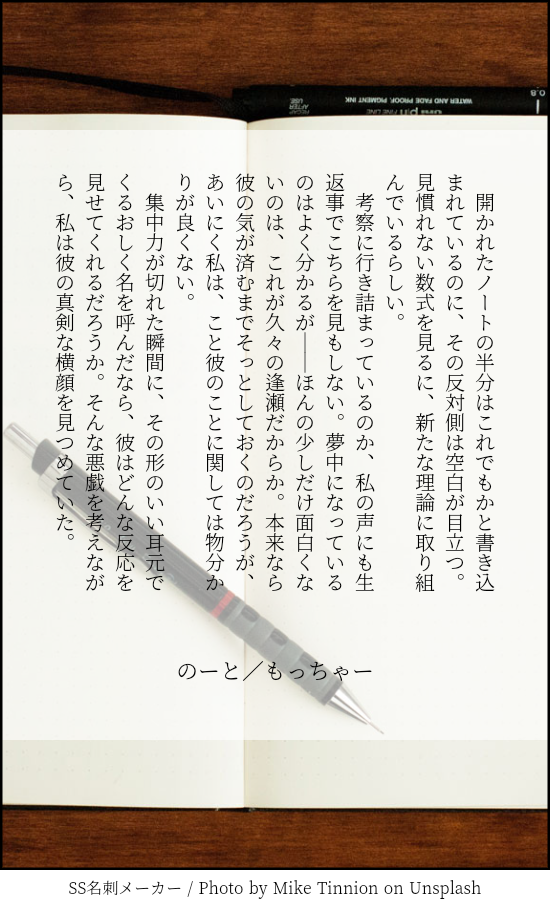 開かれたノートの半分はこれでもかと書き込
まれているのに、その反対側は空白が目立つ。
見慣れない数式を見るに、新たな理論に取り組
んでいるらしい。
考察に行き詰まっているのか、私の声にも生
返事でこちらを見もしない。夢中になっている
のはよく分かるが――ほんの少しだけ面白くな
いのは、これが久々の逢瀬だからか。本来なら
彼の気が済むまでそっとしておくのだろうが、
あいにく私は、こと彼のことに関しては物分か
りが良くない。
集中力が切れた瞬間に、その形のいい耳元で
くるおしく名を呼んだなら、彼はどんな反応を
見せてくれるだろうか。そんな悪戯を考えなが
ら、私は彼の真剣な横顔を見つめていた。
のーと／もっちゃー
0.8
WATER AND FADE PROOF, PIGMENT INK
pin FINE LINE
RECAP
AFTER
USE
SS名刺メーカー / Photo by Mike Tinnion on Unsplash